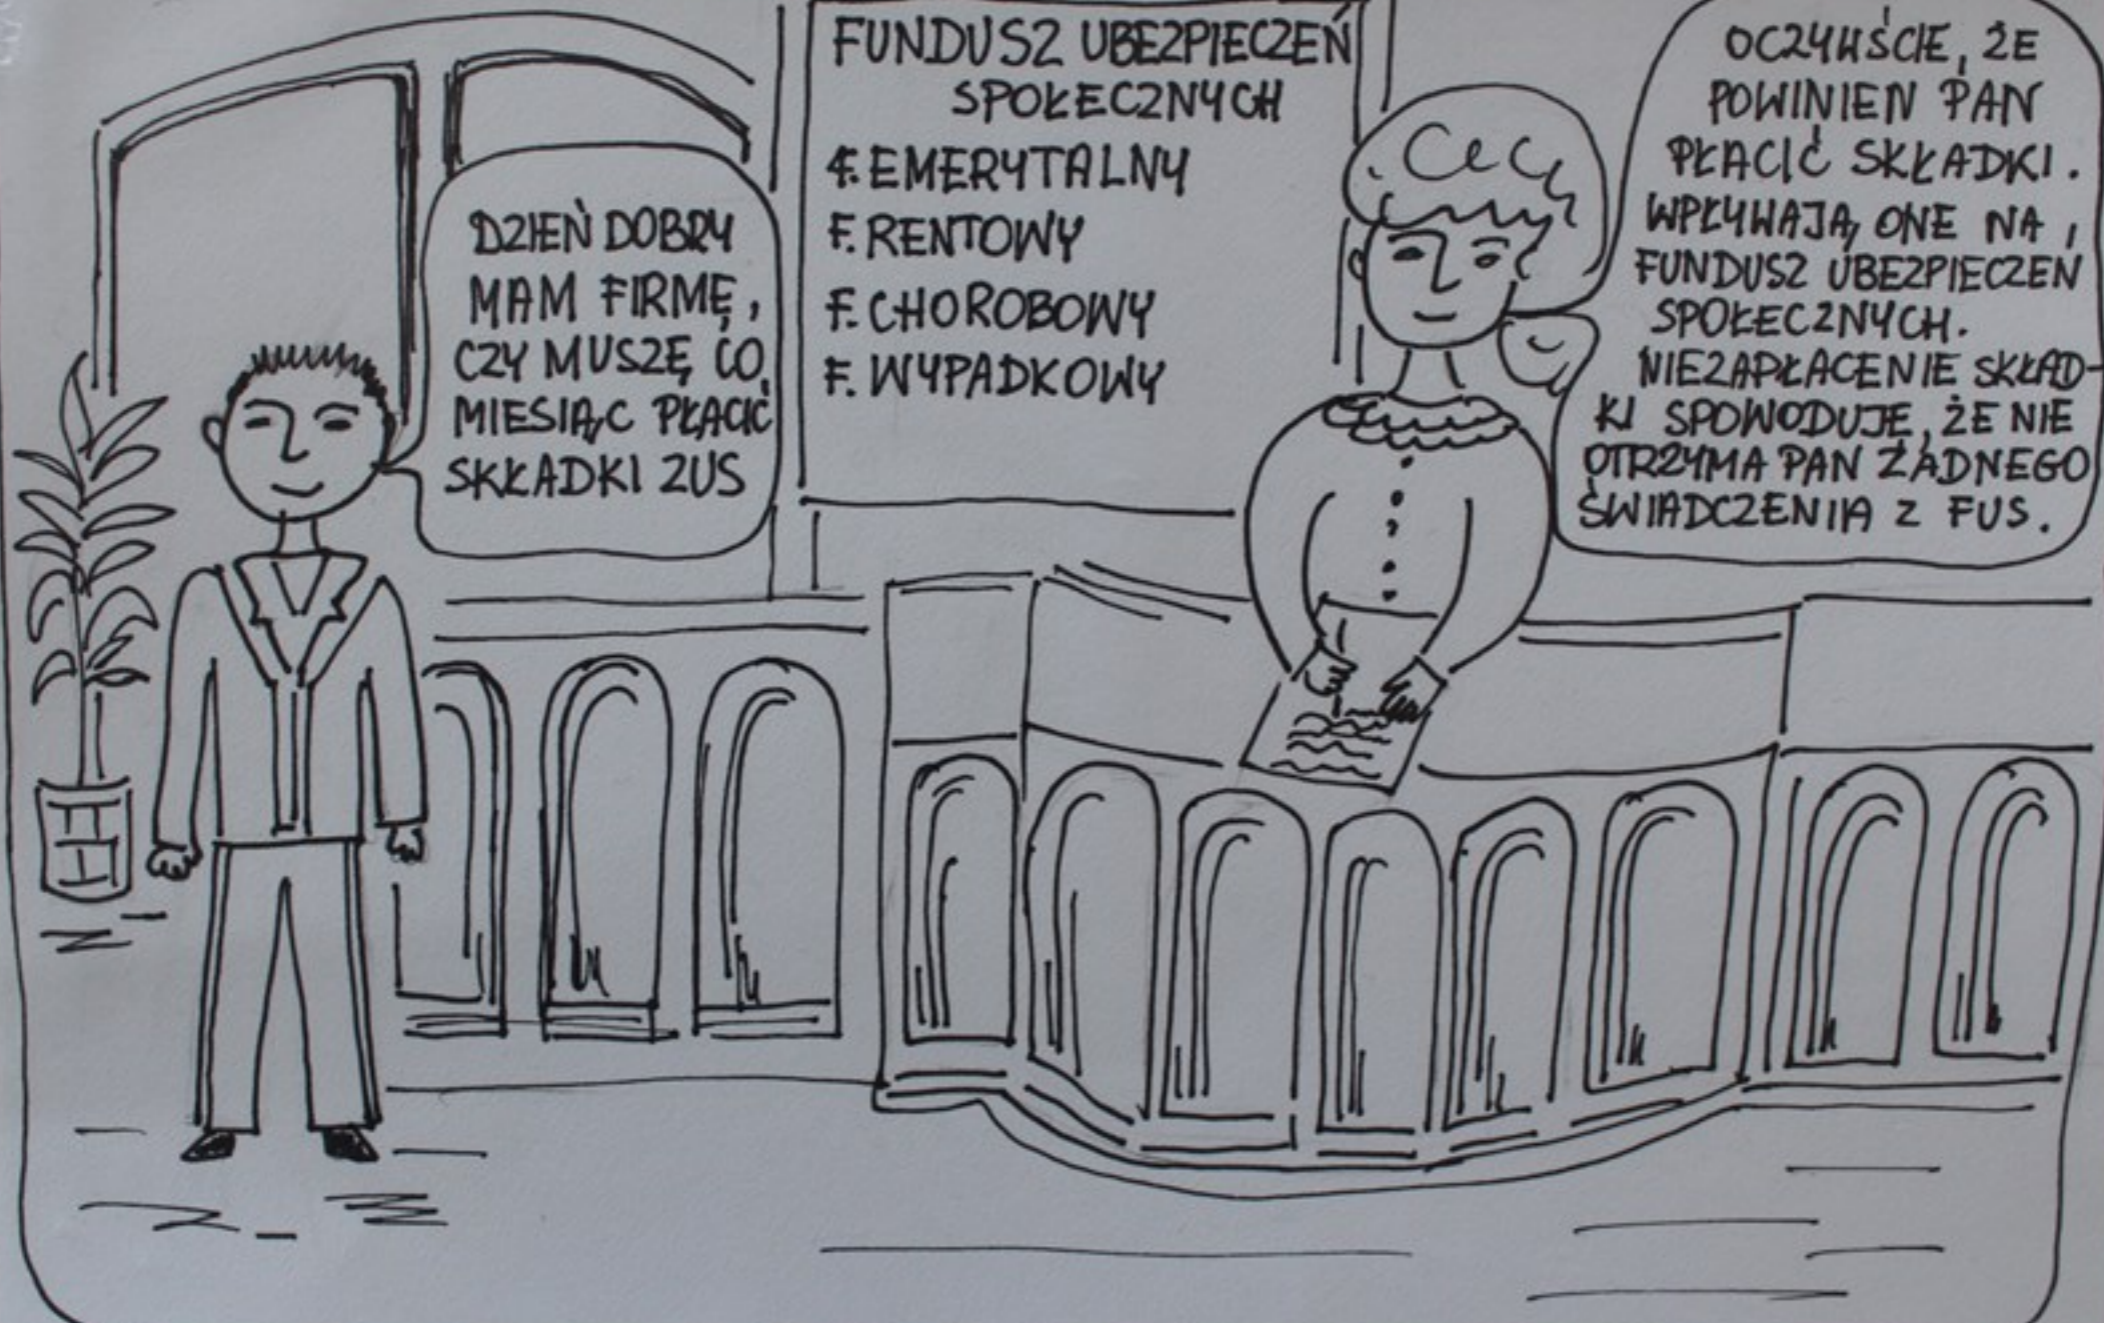 DZIEŃ DOBRY
MAM FIRMĘ,
CZY MUSZĘ CO
MIESIĄC PŁACIĆ
SKŁADKI ZUS
FUNDUSZ UBEZPIECZEŃ
SPOŁECZNYCH
F. EMERYTALNY
F. RENTOWY
F. CHOROBOWY
F. WYPADKOWY
OCZYWŚCIE, ŻE
POWINIEN PAN
PŁACIĆ SKŁADKI.
WPŁYWAJĄ ONE NA
FUNDUSZ UBEZPIECZEŃ
SPOŁECZNYCH.
NIEZAPŁACENIE SKŁAD-
KI SPOWODUJE, ŻE NIE
OTRZYMA PAN ŻADNEGO
ŚWIADCZENIA Z FUS.